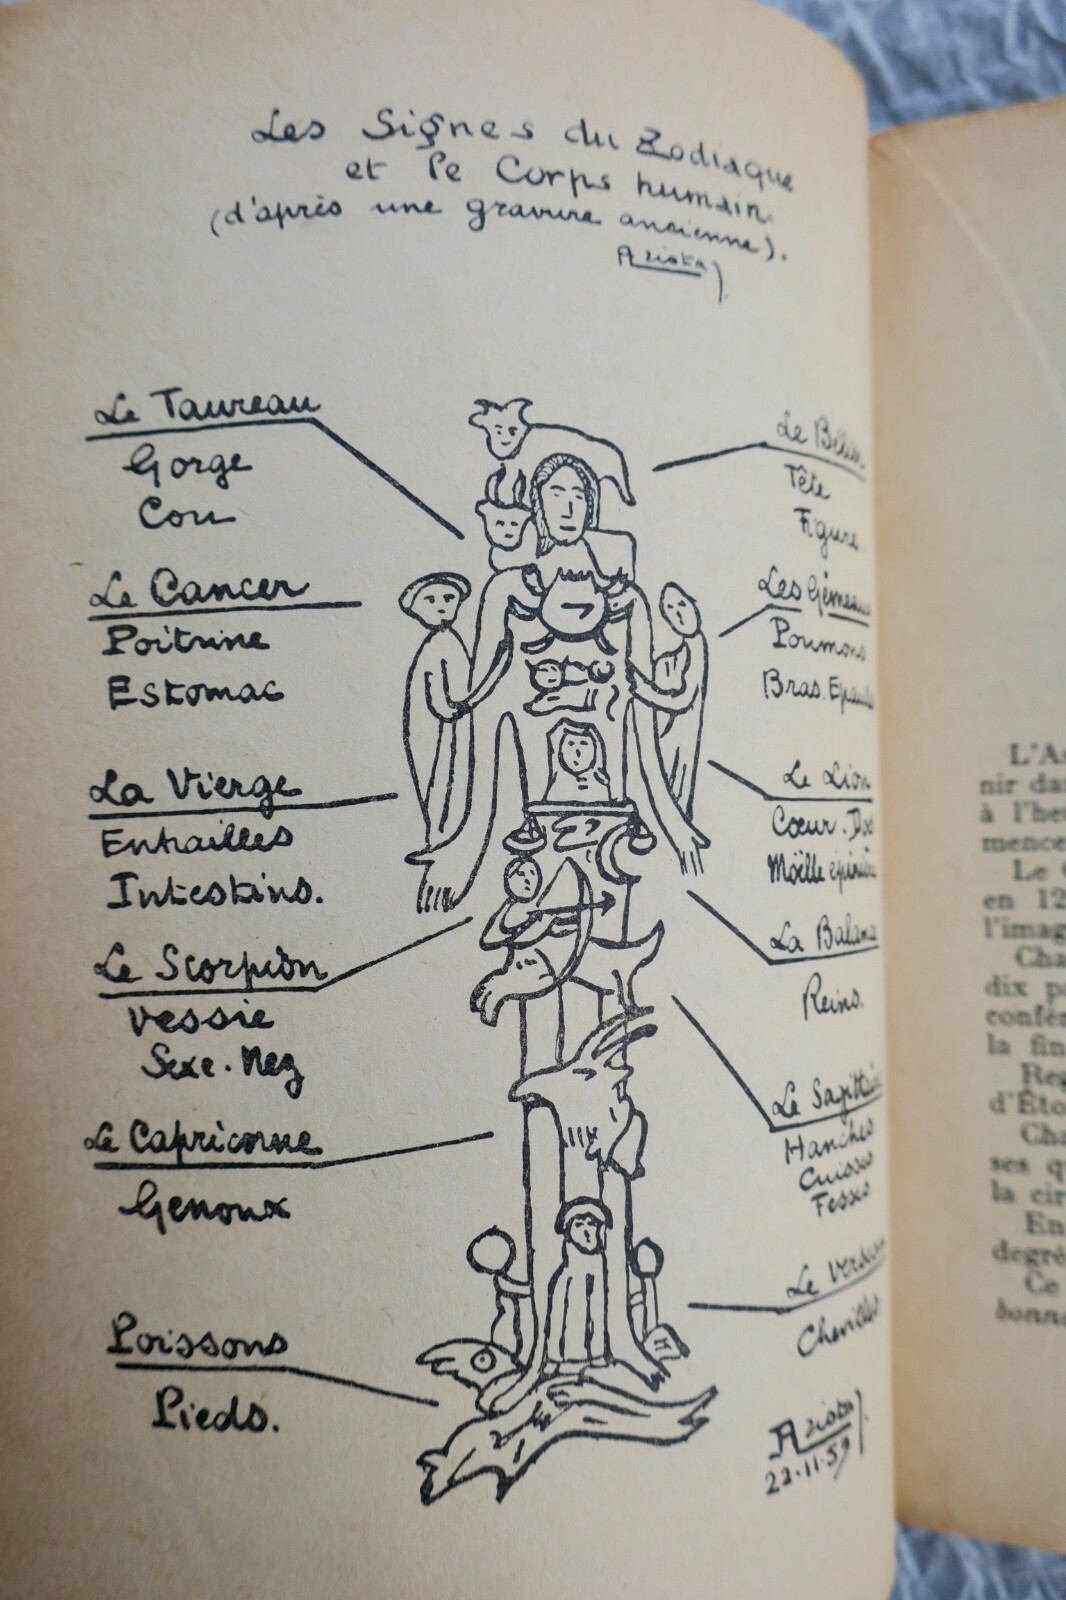 Les Signes du Zodiaque
et le Corps humain
(d'après une gravure ancienne).
Le Taureau
Gorge
Cou
Le Cancer
Poitrine
Estomac
La Vierge
Entrailles
Intestins.
Le Scorpion
Vessie
Sexe. Nez
Le Capricorne
Genoux
Poissons
Pieds.
Le Bélier
Tête
Figure
Les Gémeaux
Poumons
Bras. Epaules
Le Lion
Cœur. Dos
Moëlle épinière
La Balance
Reins.
Le Sagittaire
Hanches
Cuisses
Fesses
Le Verseau
Chevilles
22.11.59
L'As
nir dan
à l'heu
mence
Le
en 12
l'imag
Cha
dix pa
confér
la fin
Reg
d'Éto
Cha
ses qu
la cir
En
degré
Ce
bonne